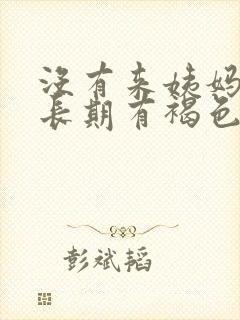 没有来姨妈
长期有褐色
彭斌韬